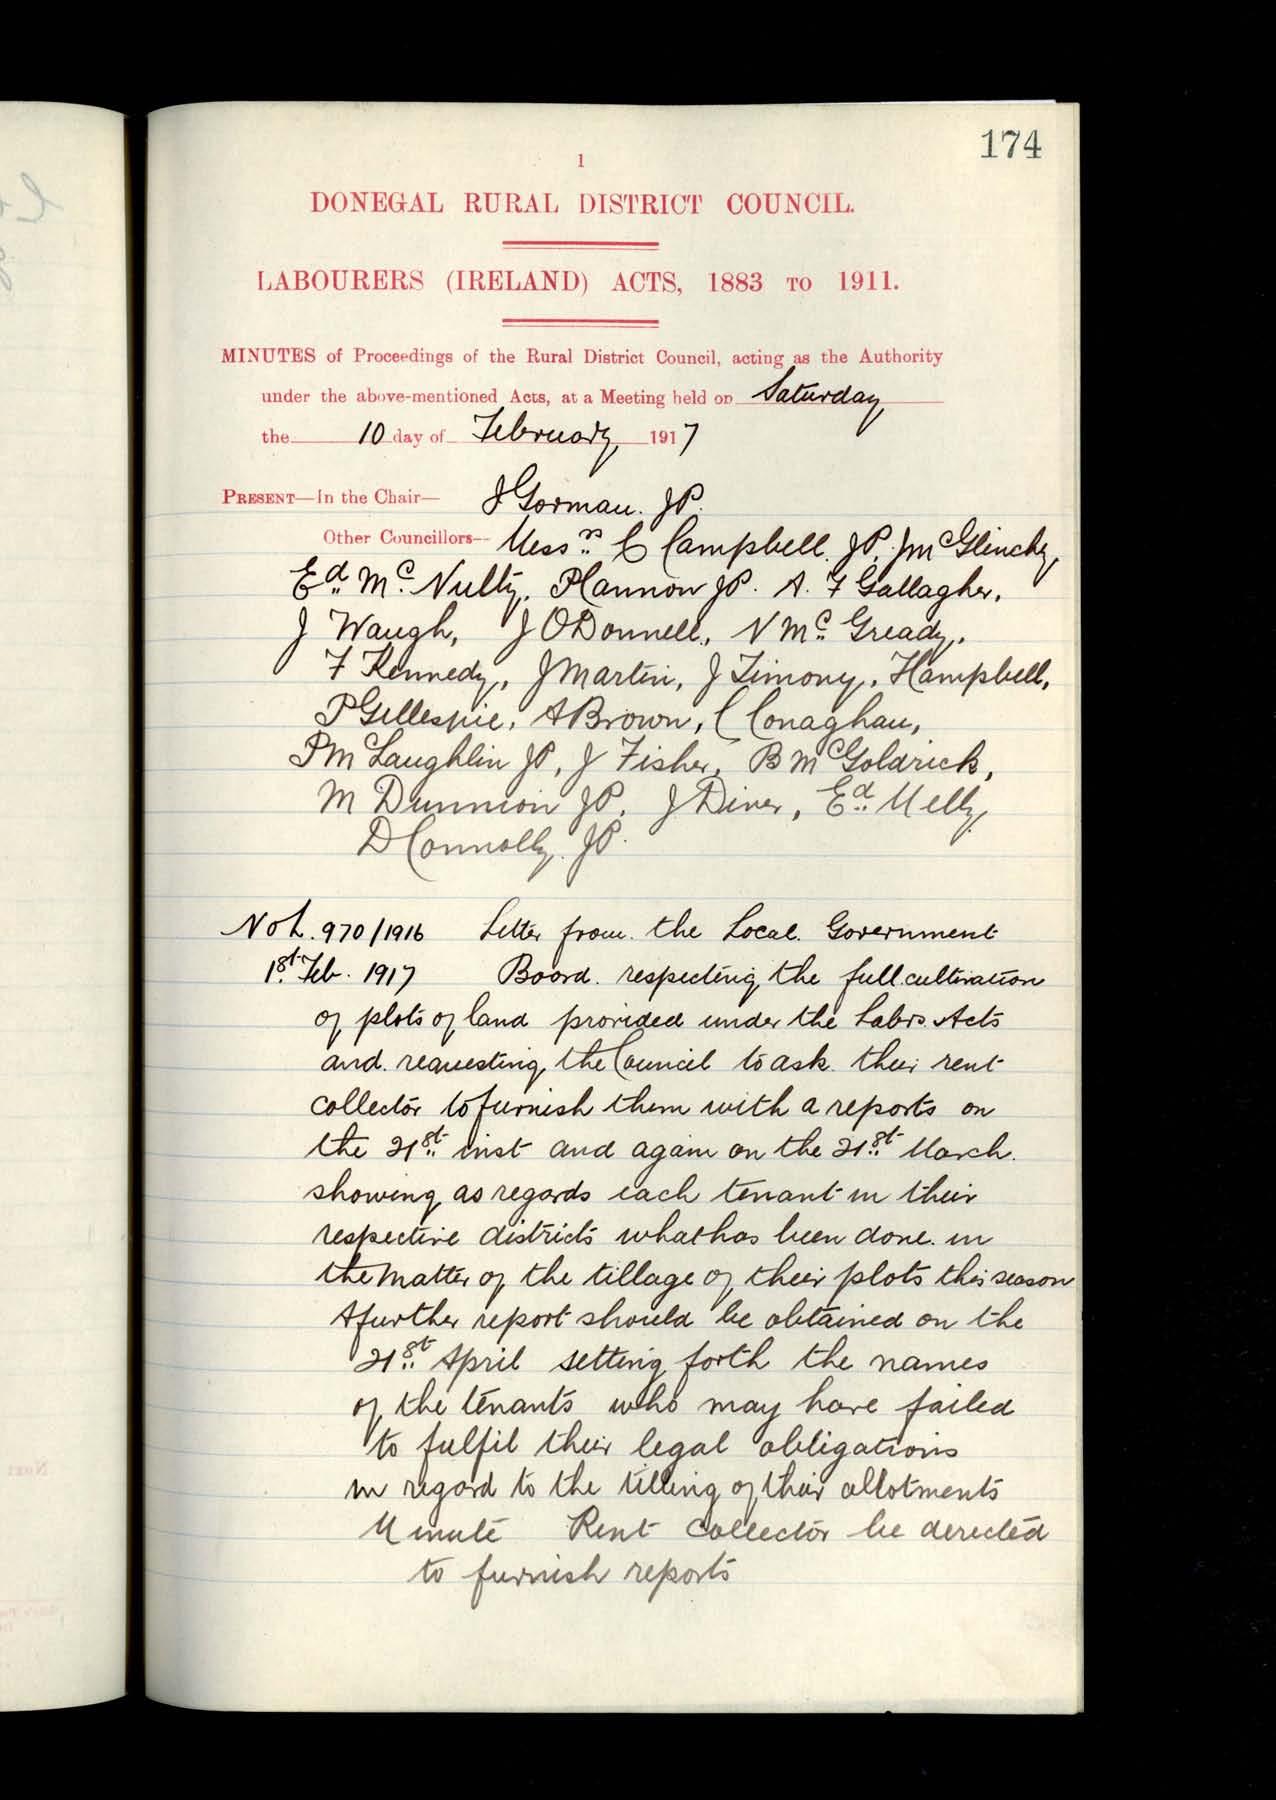 174
1
DONEGAL RURAL DISTRICT COUNCIL.
LABOURERS (IRELAND) ACTS, 1883 TO 1911.
MINUTES of Proceedings of the Rural District Council, acting as the Authority
under the above-mentioned Acts, at a Meeting held on Saturday
the 10 day of February 1917
PRESENT—In the Chair— J Gorman. JP.
Other Councillors— Messrs. C Campbell. JP. J McGlinchy
Ed. Mc. Nulty. P Cannon JP. A. F Gallagher.
J Waugh, J O'Donnell, N Mc. Gready,
F Kennedy, J Martin, J Timony, H Campbell,
P Gillespie, A Brown, C Conaghan,
P McLaughlin JP, J Fisher, B McGoldrick,
M Dunnion JP, J Diver, Ed. Melly
D Connolly. JP.
No L. 970/1916 Letter from the Local Government
1st. Feb. 1917 Board. respecting the full cultivation
of plots of land provided under the Labrs. Acts
and requesting the Council to ask their rent
collector to furnish them with a reports on
the 21st. inst and again on the 21st. March.
showing as regards each tenant in their
respective districts what has been done in
the matter of the tillage of their plots this season
A further report should be obtained on the
21st. April setting forth the names
of the tenants who may have failed
to fulfil their legal obligations
in regard to the tilling of their allotments
Minute Rent collector be derected
to furnish reports